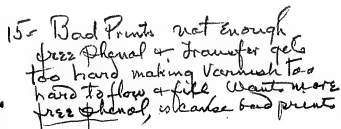 15 - Bad Prints not enough
free phenol & Transfer gets
too hard making Varnish too
hard to flow & fill Want more
free phenol, is cause bad prints